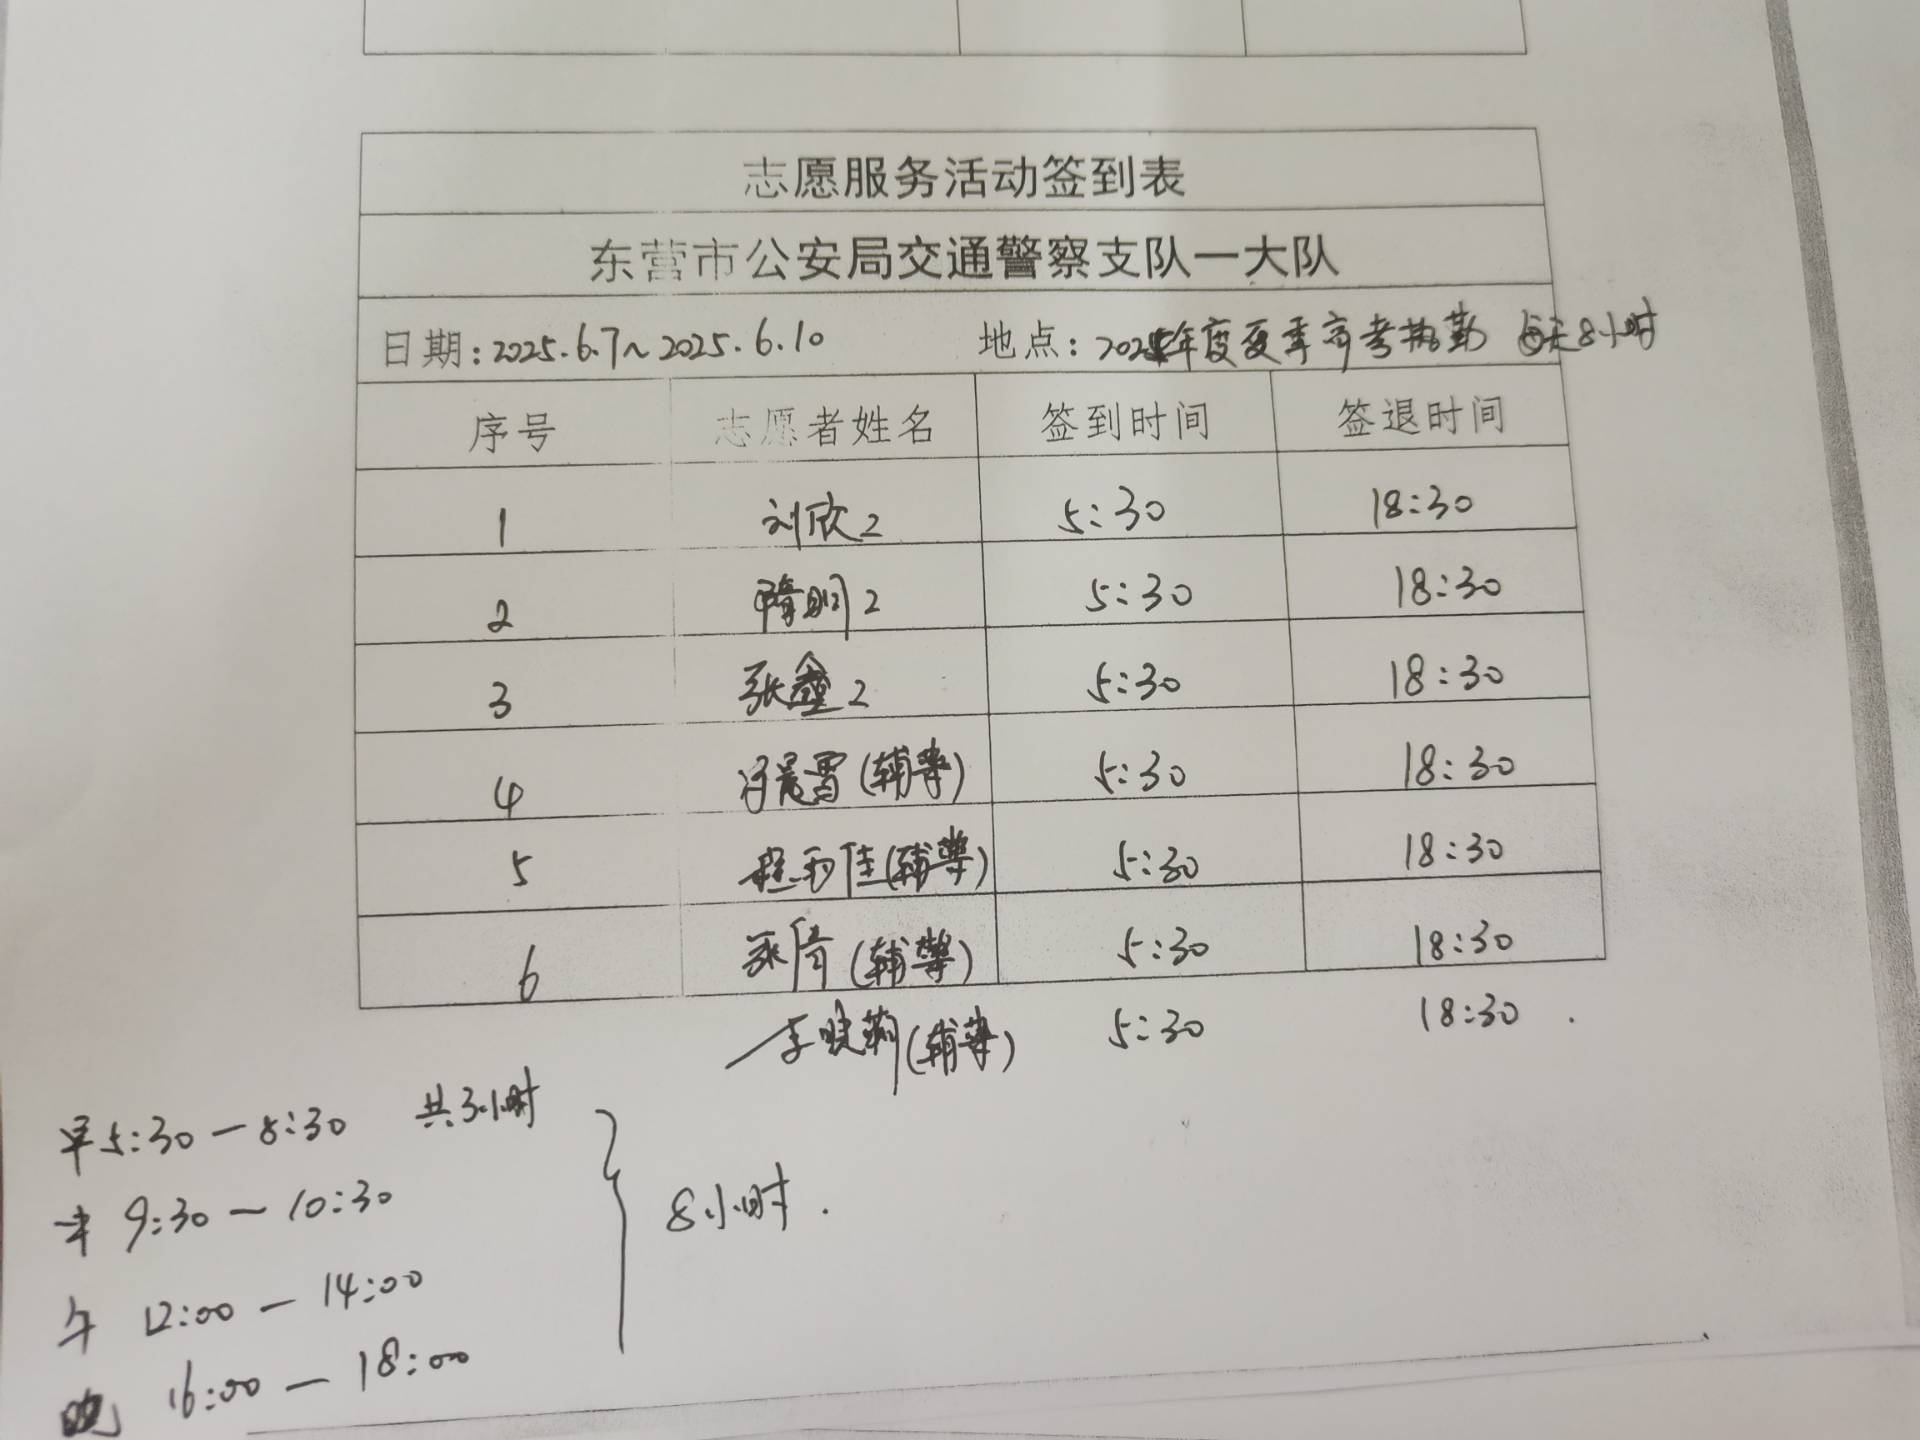 志愿服务活动签到表
东营市公安局交通警察支队一大队
日期:2025.6.7~2025.6.10 地点:2025年度夏季高考执勤 每天8小时
序号 志愿者姓名 签到时间 签退时间
1 刘欣2 5:30 18:30
2 隋明2 5:30 18:30
3 张鑫2 5:30 18:30
4 冯晨雷(辅警) 5:30 18:30
5 (辅警) 5:30 18:30
6 张倩(辅警) 5:30 18:30
李晓莉(辅警) 5:30 18:30.
早5:30—8:30 共3小时
9:30—10:30
午 12:00—14:00
晚 16:00—18:00
8小时.